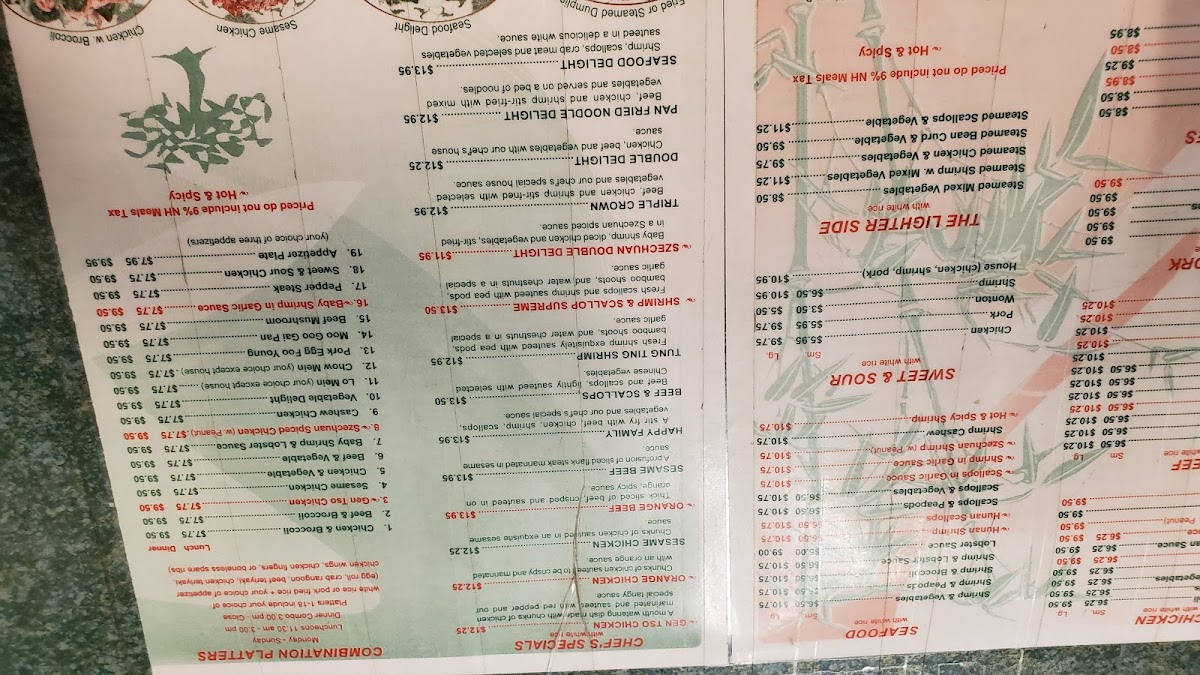 CHICKEN
with white rice
Sm. Lg
$6.25 $9.50
$6.25 $9.50
$6.25 $9.50
$6.25 $9.50
$6.25 $9.50
$6.25 $9.50
$9.50
$9.50
BEEF
with white rice
Sm. Lg
$6.50 $10.25
$6.50 $10.25
$6.50 $10.25
$6.50 $10.25
$6.50 $10.25
$10.25
$10.25
$10.25
$10.25
PORK
$9.50
$9.50
$9.50
$9.50
$9.50
$8.50
$8.50
$8.95
$9.25
$8.50
$8.95
SEAFOOD
with white rice
Sm. Lg
Shrimp & Vegetables $6.50 $10.75
Shrimp & Peapods $6.50 $10.75
Shrimp & Broccoli $6.50 $10.75
Shrimp & Lobster Sauce $6.50 $10.75
Lobster Sauce $6.00 $9.00
Hunan Shrimp $6.50 $10.75
Hunan Scallops $10.75
Scallops & Peapods $6.50 $10.75
Scallops & Vegetables $6.50 $10.75
Scallops in Garlic Sauce $10.75
Shrimp in Garlic Sauce $10.75
Szechuan Shrimp (w. Peanut) $10.75
Shrimp Cashew $10.75
Hot & Spicy Shrimp $10.75
SWEET & SOUR
with white rice
Sm. Lg.
Chicken $5.95 $9.75
Pork $5.95 $9.75
Wonton $3.50 $5.95
Shrimp $6.50 $10.95
House (chicken, shrimp, pork) $10.95
THE LIGHTER SIDE
with white rice
Steamed Mixed Vegetables $8.50
Steamed Shrimp w. Mixed Vegetables $11.25
Steamed Chicken & Vegetables $9.75
Steamed Bean Curd & Vegetable $9.50
Steamed Scallops & Vegetable $11.25
Priced do not include 9% NH Meals Tax
Hot & Spicy
CHEF'S SPECIALS
with white rice
GEN TSO CHICKEN $12.25
A mouth watering dish made with chunks of chicken
marinated and sauteed with red pepper and our
special tangy sauce.
ORANGE CHICKEN $12.25
Chunks of chicken sauteed to be crispy and marinated
with an orange sauce.
SESAME CHICKEN $12.25
Chunks of chicken sauteed in an exquisite sesame
sauce.
ORANGE BEEF $13.95
Thick sliced of beef, crisped and sauteed in our
orange, spicy sauce.
SESAME BEEF $13.95
A profusion of sliced flank steak marinated in sesame
sauce
HAPPY FAMILY $13.95
A stir fry with beef, chicken, shrimp, scallops,
vegetables and our chef's special sauce.
BEEF & SCALLOPS $13.50
Beef and scallops, lightly sauteed with selected
Chinese vegetables.
TUNG TING SHRIMP $12.95
Fresh shrimp exquisitely sauteed with pea pods,
bamboo shoots, and water chestnuts in a special
garlic.
SHRIMP & SCALLOP SUPREME $13.50
Fresh scallops and shrimp sauteed with pea pods,
bamboo shoots, and water chestnuts in a special
garlic sauce.
SZECHUAN DOUBLE DELIGHT $11.95
Baby shrimp, diced chicken and vegetables, stir-fried
in a Szechuan spiced sauce.
TRIPLE CROWN $12.95
Beef, chicken and shrimp stir-fried with selected
vegetables and our chef's special house sauce.
DOUBLE DELIGHT $12.25
Chicken, beef and vegetables with our chef's house
sauce.
PAN FRIED NOODLE DELIGHT $12.95
Beef, chicken and shrimp stir-fried with mixed
vegetables and serve on a bed of noodles.
SEAFOOD DELIGHT $13.95
Shrimp, scallops, crab meat and selected vegetables
sauteed in a delicious white sauce.
COMBINATION PLATTERS
Monday - Sunday
Luncheons 11:30 am - 3:00 pm
Dinner Combo 3:00 pm - Close
Platters 1-18 include your choice of
white rice or pork fried rice + your choice of appetizer
(egg roll, crab rangoon, beef teriyaki, chicken teriyaki,
chicken wings, chicken fingers, or boneless spare ribs)
Lunch Dinner
1. Chicken & Broccoli $7.75 $9.50
2. Beef & Broccoli $7.75 $9.50
3. Gen Tso Chicken $7.75 $9.50
4. Sesame Chicken $7.75 $9.50
5. Chicken & Vegetable $7.75 $9.50
6. Beef & Vegetable $7.75 $9.50
7. Baby Shrimp & Lobster Sauce $7.75 $9.50
8. Szechuan Spiced Chicken (w. Peanut) $7.75 $9.50
9. Cashew Chicken $7.75 $9.50
10. Vegetable Delight $7.75 $9.50
11. Lo Mein (your choice except house) $7.75 $9.50
12. Chow Mein (your choice except house) $7.75 $9.50
13. Pork Egg Foo Young $7.75 $9.50
14. Moo Goo Gai Pan $7.75 $9.50
15. Beef Mushroom $7.75 $9.50
16. Baby Shrimp in Garlic Sauce $7.75 $9.50
17. Pepper Steak $7.75 $9.50
18. Sweet & Sour Chicken $7.75 $9.50
19. Appetizer Plate $7.95 $9.95
(your choice of three appetizers)
Priced do not include 9% NH Meals Tax
Hot & Spicy
Fried or Steamed Dumplin
Seafood Delight
Sesame Chicken
Chicken w. Broccoli